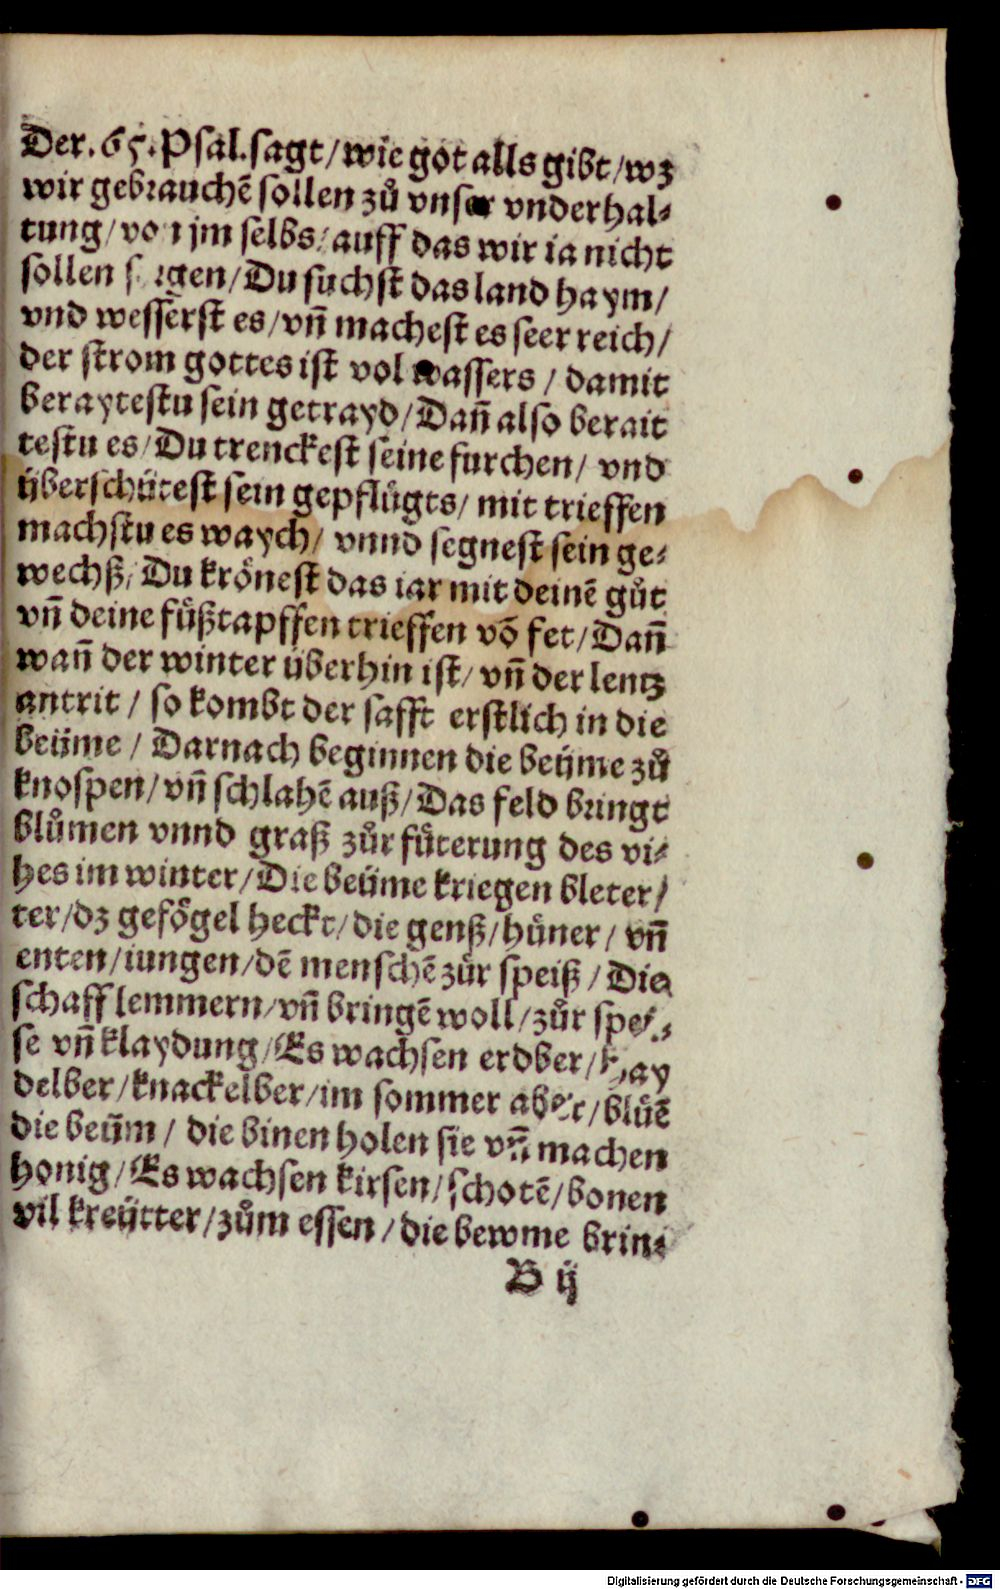 Der. 65. Psal. sagt/ wie got alls gibt/ wz
wir gebrauchẽ sollen zů vnser vnderhal⸗
tung/ von jm selbs/ auff das wir ia nicht
sollen sorgen/ Du suchst das land haym/
vnd wesserst es/ vñ machest es seer reich/
der strom gottes ist vol wassers/ damit
beraytestu sein getrayd/ Dañ also berait
testu es/ Du trenckest seine furchen/ vnd
überschütest sein gepflůgts/ mit trieffen
machstu es waych/ vnnd segnest sein ge⸗
wechß/ Du krönest das iar mit deinẽ gůt
vñ deine fůßtapffen trieffen võ fet/ Dañ
wañ der winter überhin ist/ vñ der lentz
antrit/ so kombt der safft erstlich in die
beüme/ Darnach beginnen die beüme zů
knospen/ vñ schlahẽ auß/ Das feld bringt
blůmen vnnd graß zůr fůterung des vi⸗
hes im winter/ Die beüme kriegen bleter/
ter/ dz gefögel heckt/ die genß/ hüner/ vñ
enten/ iungen/ dẽ menschẽ zůr speiß/ Die
schaff lemmern/ vñ bringẽ woll/ zůr spei⸗
se vñ klaydung/ Es wachsen erdber/ hay
delber/ knackelber/ im sommer aber/ blůẽ
die beüm/ die binen holen sie vñ machen
honig/ Es wachsen kirsen/ schotẽ/ bonen
vil kreütter/ zům essen/ die bewme brin⸗
B ij
Digitalisierung gefördert durch die Deutsche Forschungsgemeinschaft - DFG